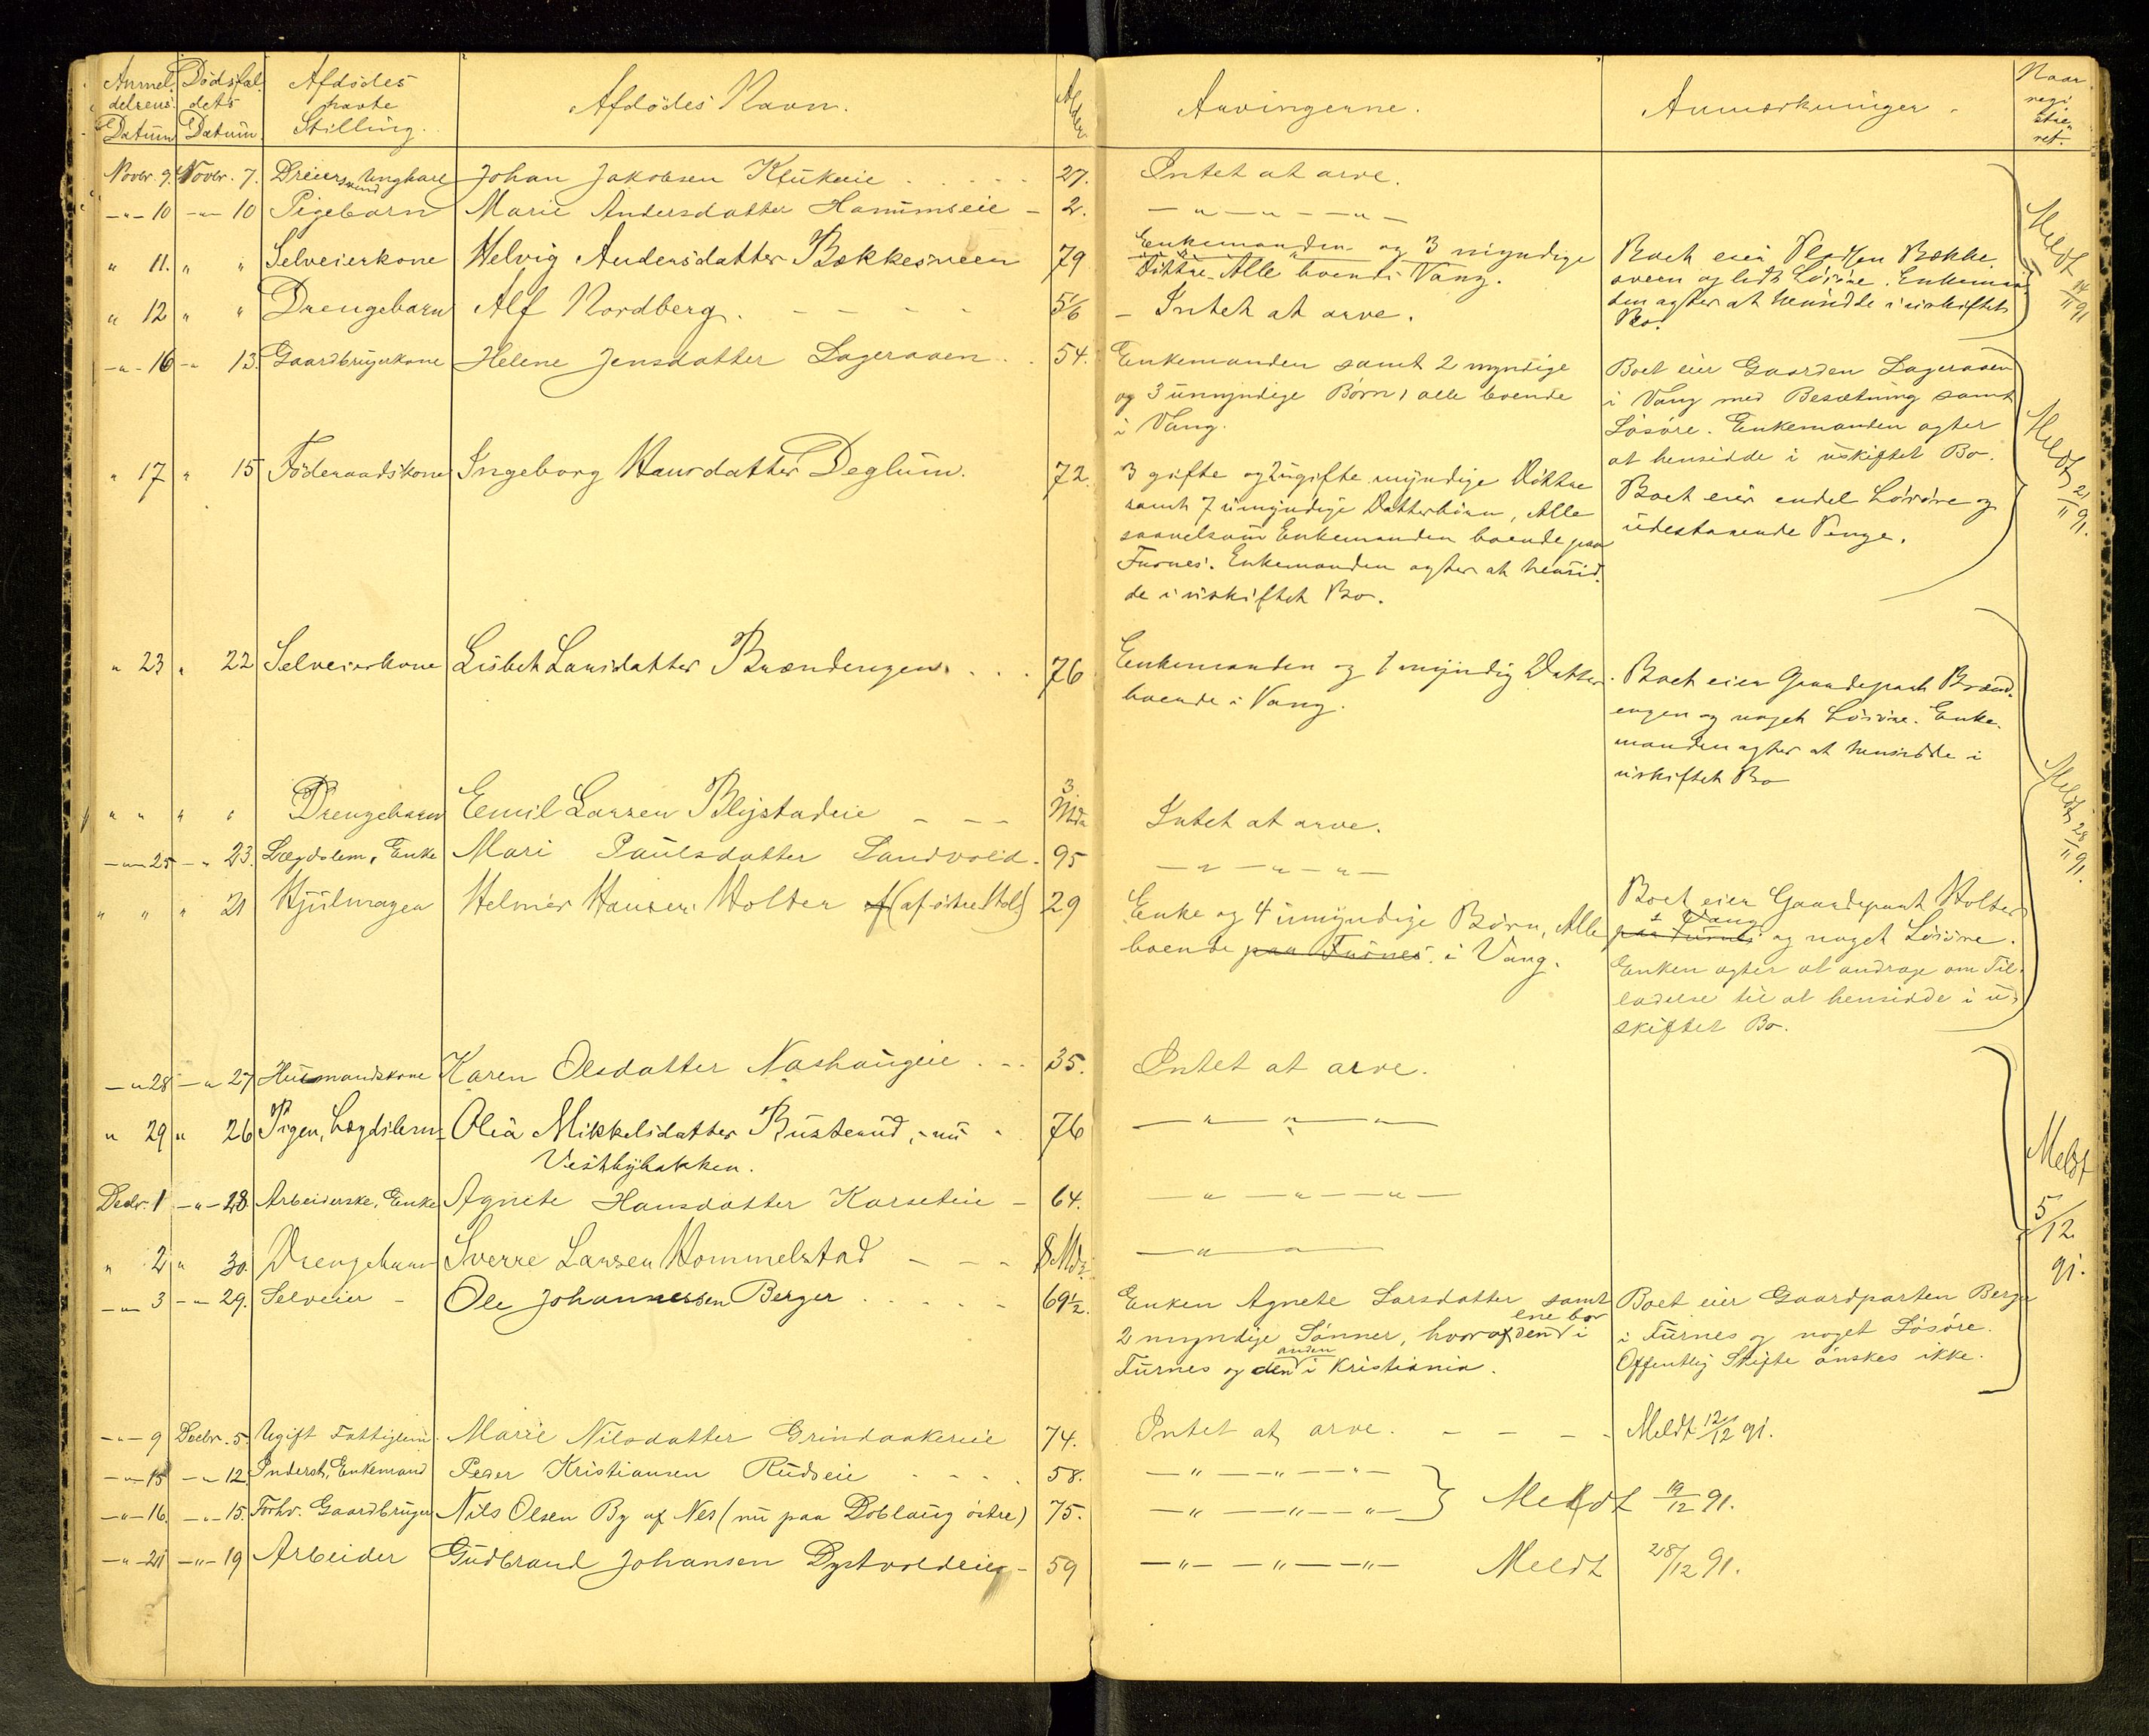 Anmel. Dødsfal. Afdødes Afdødes Navn. Alder. Arvingerne. Anmærkninger. Naar
delsens dets havte regi
Datum Datum Stilling. stre
ret.
Novbr. 9. Novbr. 7. Dreiersvend Ungkarl Johan Jakobsen Klukeie 27. Intet at arve.
-"- 10 -"- 10 Pigebarn Marie Andersdatter Hanumseie - 2. -"-"-"-
" 11. " " Selveierkone Helvig Andersdatter Bækkesveen 79 Enkemanden og 3 myndige
Døttre. Alle boende i Vang.
Boet eier Pladsen Bække
sveen og lidt Løsøre. Enkeman
den agter at hensidde i uskiftet
Bo.
" 12 " " Drengebarn Alf Nordberg. 5 1/6 - Intet at arve.
Meldt 14/11 91
-"- 16 -"- 13. Gaardbrugerkone Helene Jensdatter Lageraaen 54. Enkemanden samt 2 myndige
og 3 umyndige Børn, alle boende
i Vang.
Boet eier Gaarden Lageraaen
i Vang med Besætning samt
Løsøre. Enkemanden agter
at hensidde i uskiftet Bo.
" 17 " 15 Føderaadskone Ingeborg Hansdatter Deglum. 72. 3 gifte og 2 ugifte myndige Døttre
samt 7 umyndige Datterbørn, Alle
saavelsom Enkemanden boende paa
Furnes. Enkemanden agter at hensid.
de i uskiftet Bo.
Boet eier endel Løsøre og
udestaaende Penge.
Meldt 21/11 91.
" 23 " 22 Selveierkone Lisbet Larsdatter Brændengen. 76 Enkemanden og 1 myndig Datter.
boende i Vang.
Boet eier Gaardepart Brænd.
engen og noget Løsøre. Enke.
manden agter at hensidde i
uskiftet Bo
" " " " Drengebarn Emil Larsen Blystadeie - - - 3 Mdr Intet at arve.
-"- 25 -"- 23. Lægdslem, Enke Mari Paulsdatter Sandvold. 95 -"-"-"-
" " " 21 Hjulmager Helmer Hansen Holter (af østre Hol) 29 Enke og 4 umyndige Børn, Alle
boende paa Furnes. i Vang.
Boet eier Gaardepart Holter
i Vang
paa Furnes og noget Løsøre.
Enken agter at andrage om Til.
ladelse til at hensidde i u.
skiftet Bo.
Meldt 28/11 91.
-"- 28 -"- 27 Husmandskone Karen Olsdatter Nashaugeie 35. Intet at arve.
" 29 " 26 Pigen, Lægdslem Olea Mikkelsdatter Rusterud, nu 76 -"-"-
Vestbybakken.
Decbr. 1 -"- 28. Arbeiderske, Enke Agnete Hansdatter Karseteie - 64. -"-"-"-
" 2 " 30. Drengebarn Sverre Larsen Hommelstad - - - 8 Mdr. -"-"-
-"- 3 -"- 29. Selveier - Ole Johannessen Berger 69 1/2. Enken Agnete Larsdatter samt
2 myndige Sønner, hvoraf den ene bor i
Furnes og den anden i Kristiania.
Boet eier Gaardparten Berger
i Furnes og noget Løsøre.
Offentlig Skifte ønskes ikke.
Meldt
5/12
91.
-"- 9 Decbr. 5. Ugift Fattiglem. Marie Nilsdatter Grindaakereie 74. Intet at arve. - - - Meldt 12/12 91.
-"- 15 -"- 12. Inderst, Enkemand Peder Kristiansen Rudseie 58. -"-"-"-
-"- 16. -"- 15. Forhv. Gaardbruger Nils Olsen By af Nes (nu paa Doblaug østre) 75. -"-"-"- Meldt 19/12 91.
-"- 21 -"- 19 Arbeider Gudbrand Johansen Dystvoldeie - 59 -"-"-"- Meldt 28/12 91.